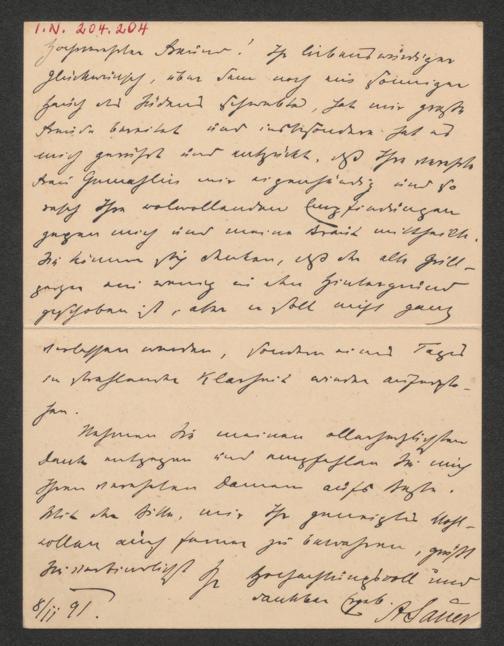 I.N. 204.204
Hochverehrter Freund! Ihr liebenswürdiger
Glückwunsch, über dem noch ein sonniger
Hauch des Südens schwebte, hat mir große
Freude bereitet und insbesondere hat es
mich gerührt und entzückt, daß Ihre verehrte
Frau Gemahlin mir eigenhändig und so
rasch Ihre wolwollenden Empfindungen
gegen mich und meine Braut mittheilt.
Sie können sich denken, daß der alte Grill-
parzer ein wenig in den Hintergrund
geschoben ist, aber er soll nicht ganz
verlassen werden, sondern eines Tages
in strahlender Klarheit wieder aufersteh-
hen.
Nehmen Sie meinen allerherzlichsten
Dank entgegen und empfehlen Sie mich
Ihren verehrten Damen aufs Beste.
Mit der Bitte, mir Ihr geneigtes Wohl-
wollen auch ferner zu bewahren, grüßt
Sie verbindlichst Ihr hochachtungsvoll und
dankbar Ergeb.
8/II 91. A Sauer